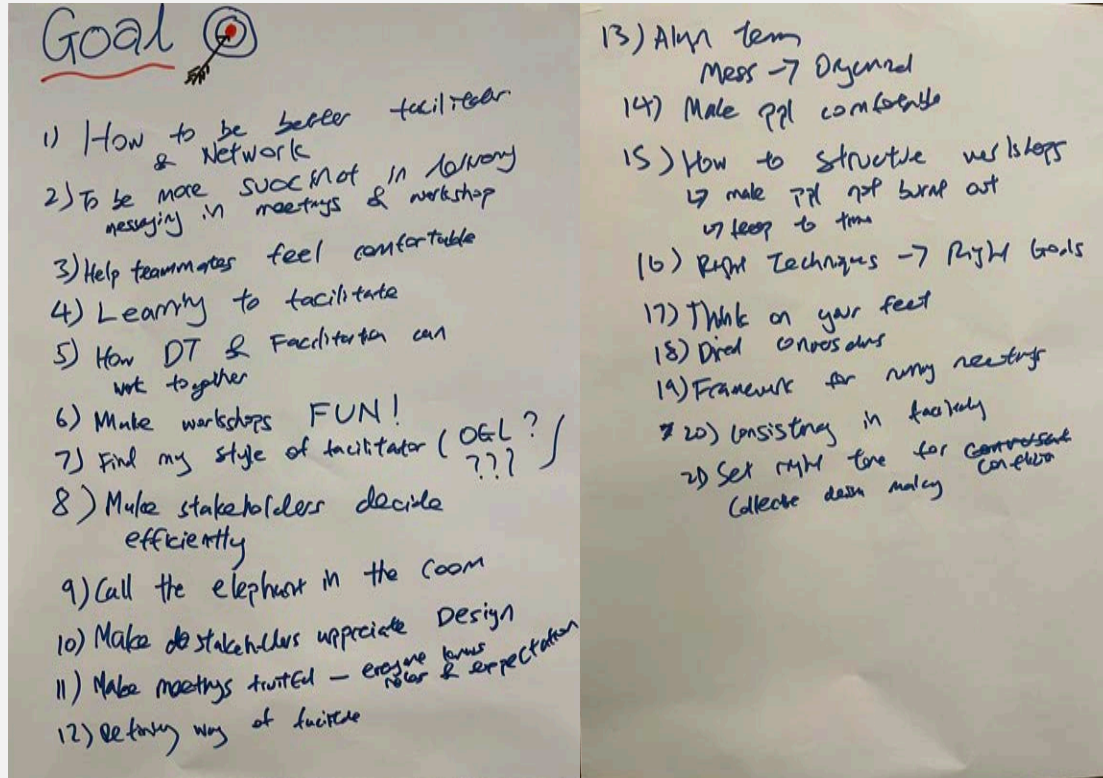 Goal
1) How to be better facilitator
& Network
2) To be more succinct in delivery
messaging in meetings & workshop
3) Help teammates feel comfortable
4) Learning to facilitate
5) How DT & Facilitation can
work together
6) Make workshops FUN!
7) Find my style of facilitator (OGL?
???)
8) Make stakeholders decide
efficiently
9) Call the elephant in the room
10) Make stakeholders appreciate Design
11) Make meetings fruitful – everyone knows
roles & expectation
12) way of
13) Align team
Mess → Organized
14) Make ppl comfortable
15) How to structure workshops
↳ make ppl not burnt out
↳ keep to time
16) Right Techniques → Right Goals
17) Think on your feet
18) Direct
19) Framework for running meetings
20) in
21) Set right tone for
making